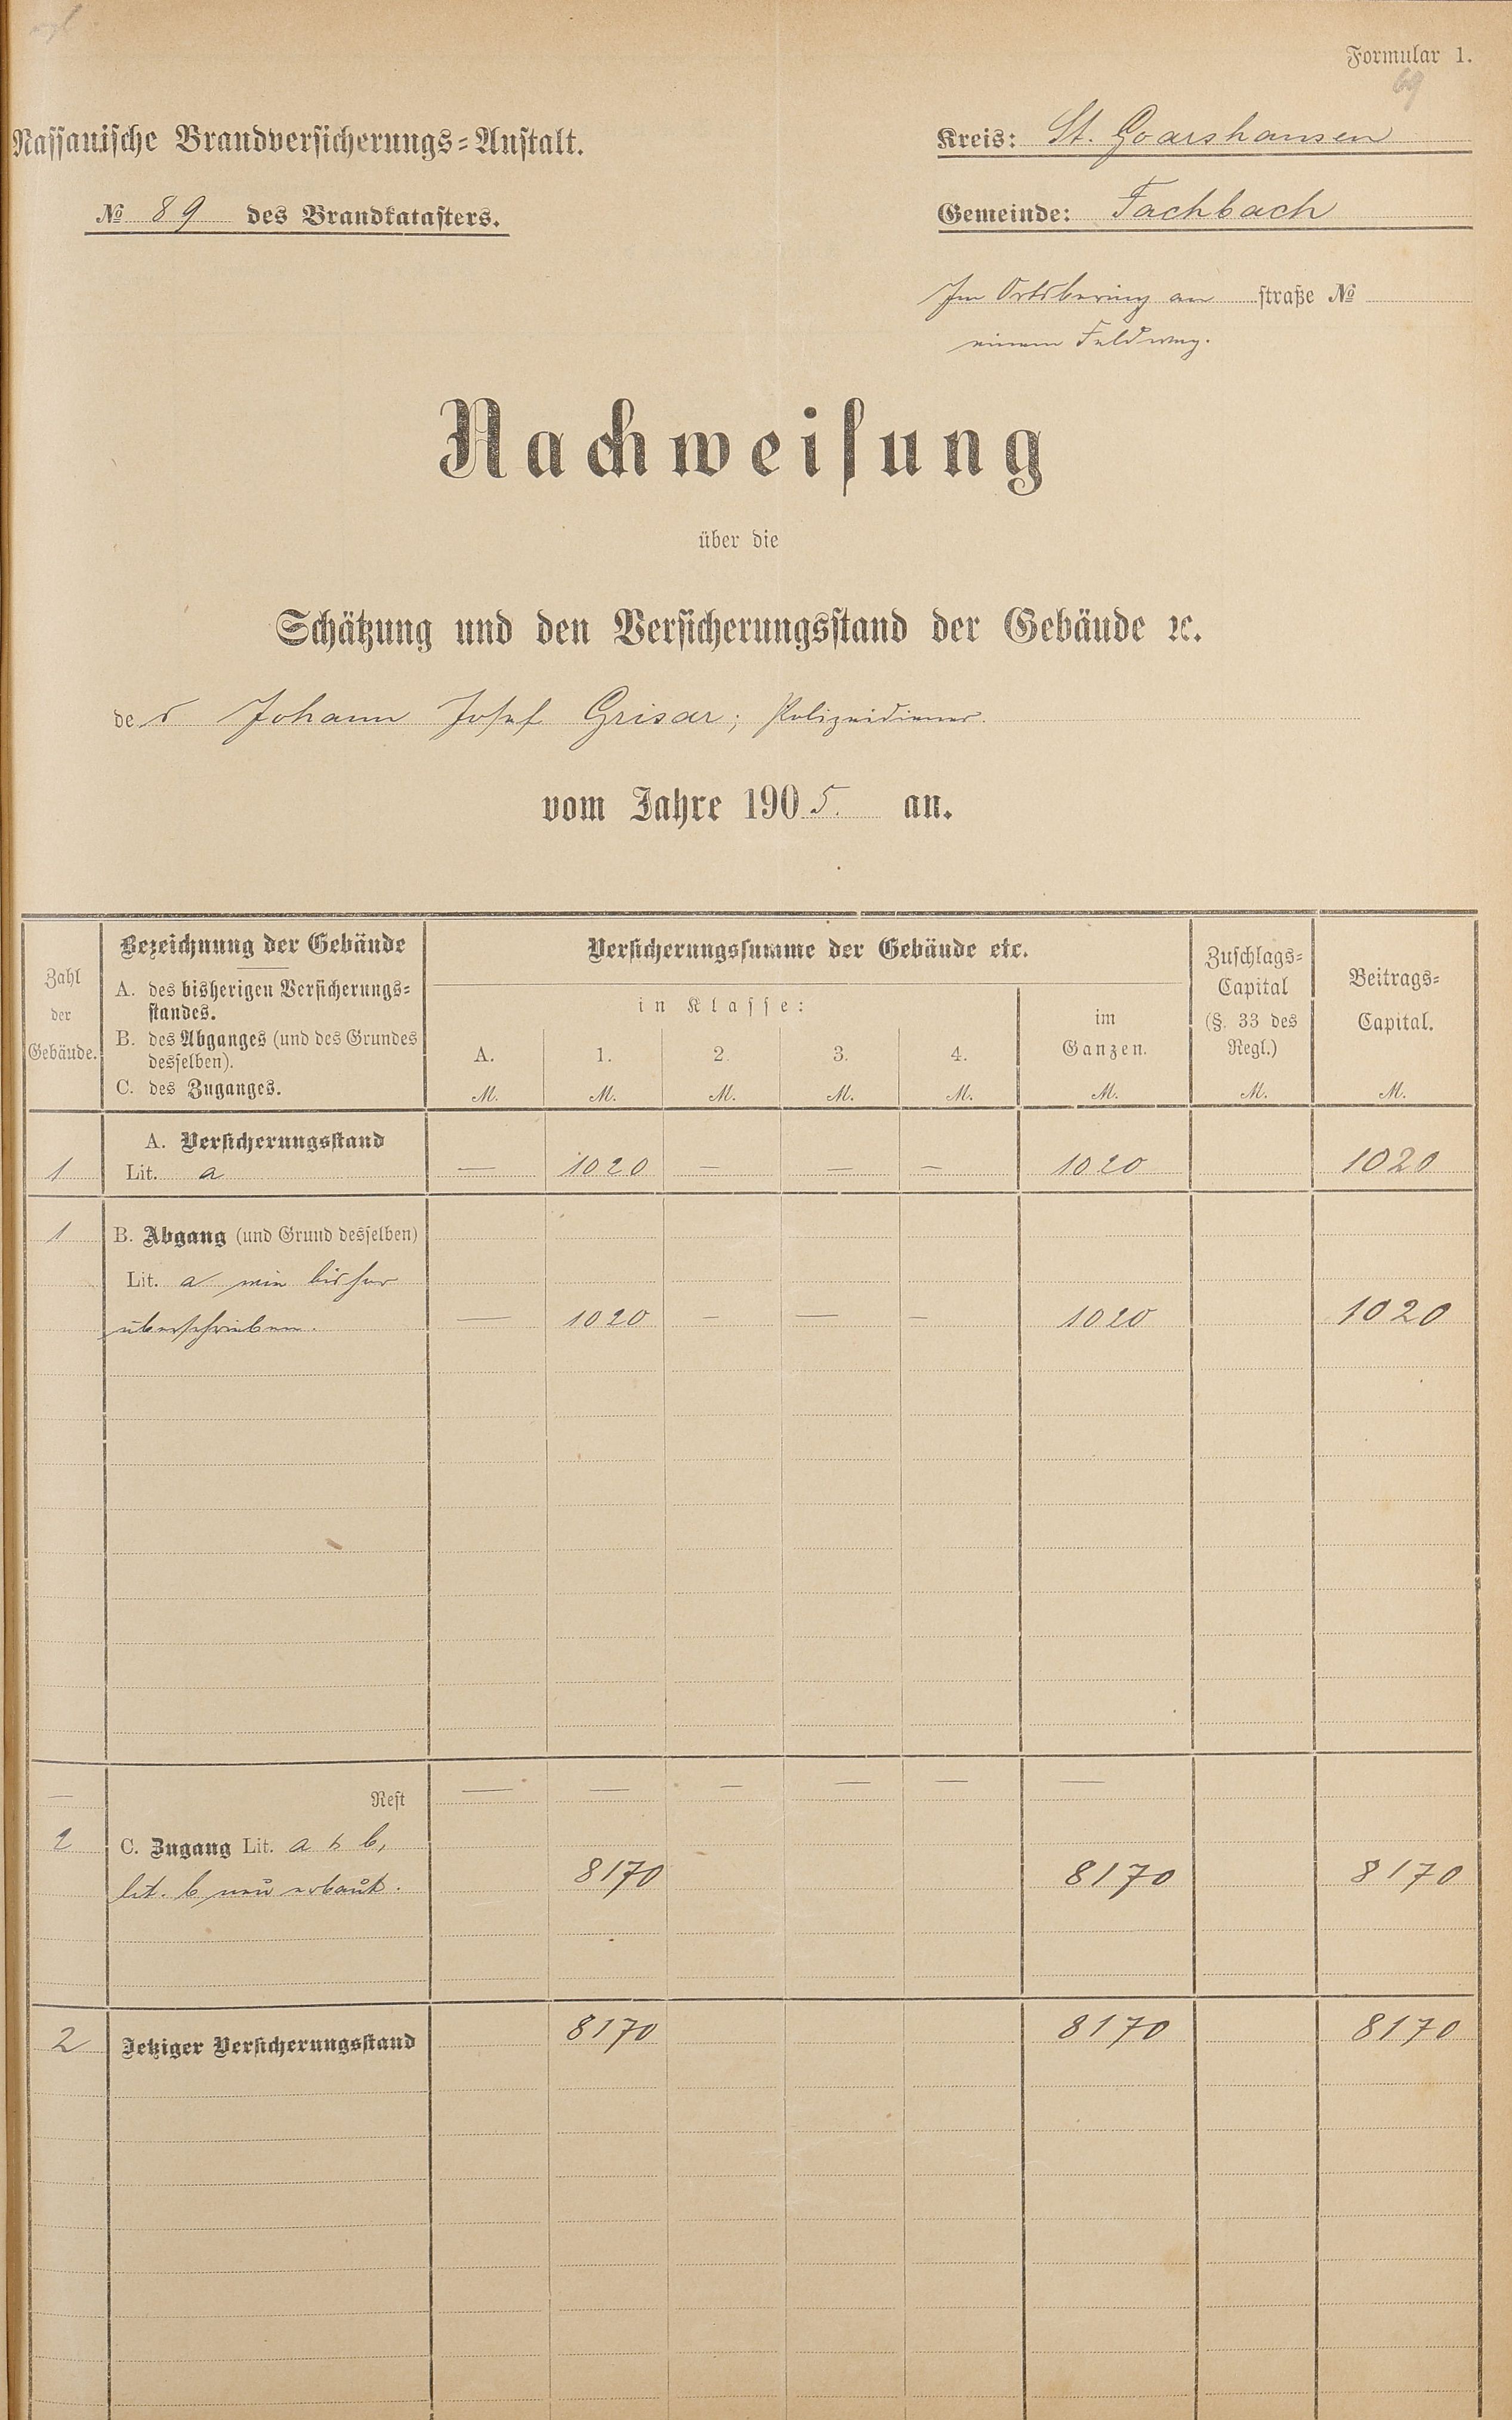 Formular 1.
69
Nassauische Brandversicherungs=Anstalt.
Kreis: St. Goarshausen
№ 89 des Brandkatasters.
Gemeinde: Fachbach
Im Ortsbering an straße №
einem Feldweg.
Nachweisung
über die
Schätzung und den Versicherungsstand der Gebäude ꝛc.
des Johann Josef Grisar; Polizeidiener.
vom Jahre 1905. an.
Zahl der Gebäude.
Bezeichnung der Gebäude
A. des bisherigen Versicherungs=
standes.
B. des Abganges (und des Grundes
desselben).
C. des Zuganges.
Versicherungssumme der Gebäude etc.
in Klasse:
A. 1. 2. 3. 4.
im Ganzen.
Zuschlags=
Capital
(§. 33 des
Regl.)
Beitrags=
Capital.
M. M. M. M. M. M. M. M.
A. Versicherungsstand
1 Lit. a — 1020 — — — 1020 1020
1 B. Abgang (und Grund desselben)
Lit. a wie bisher
überschrieben. — 1020 — — — 1020 1020
— Rest — — — — — —
2 C. Zugang Lit. a & b,
lit. b neu erbaut. 8170 8170 8170
2 Jetziger Versicherungsstand 8170 8170 8170